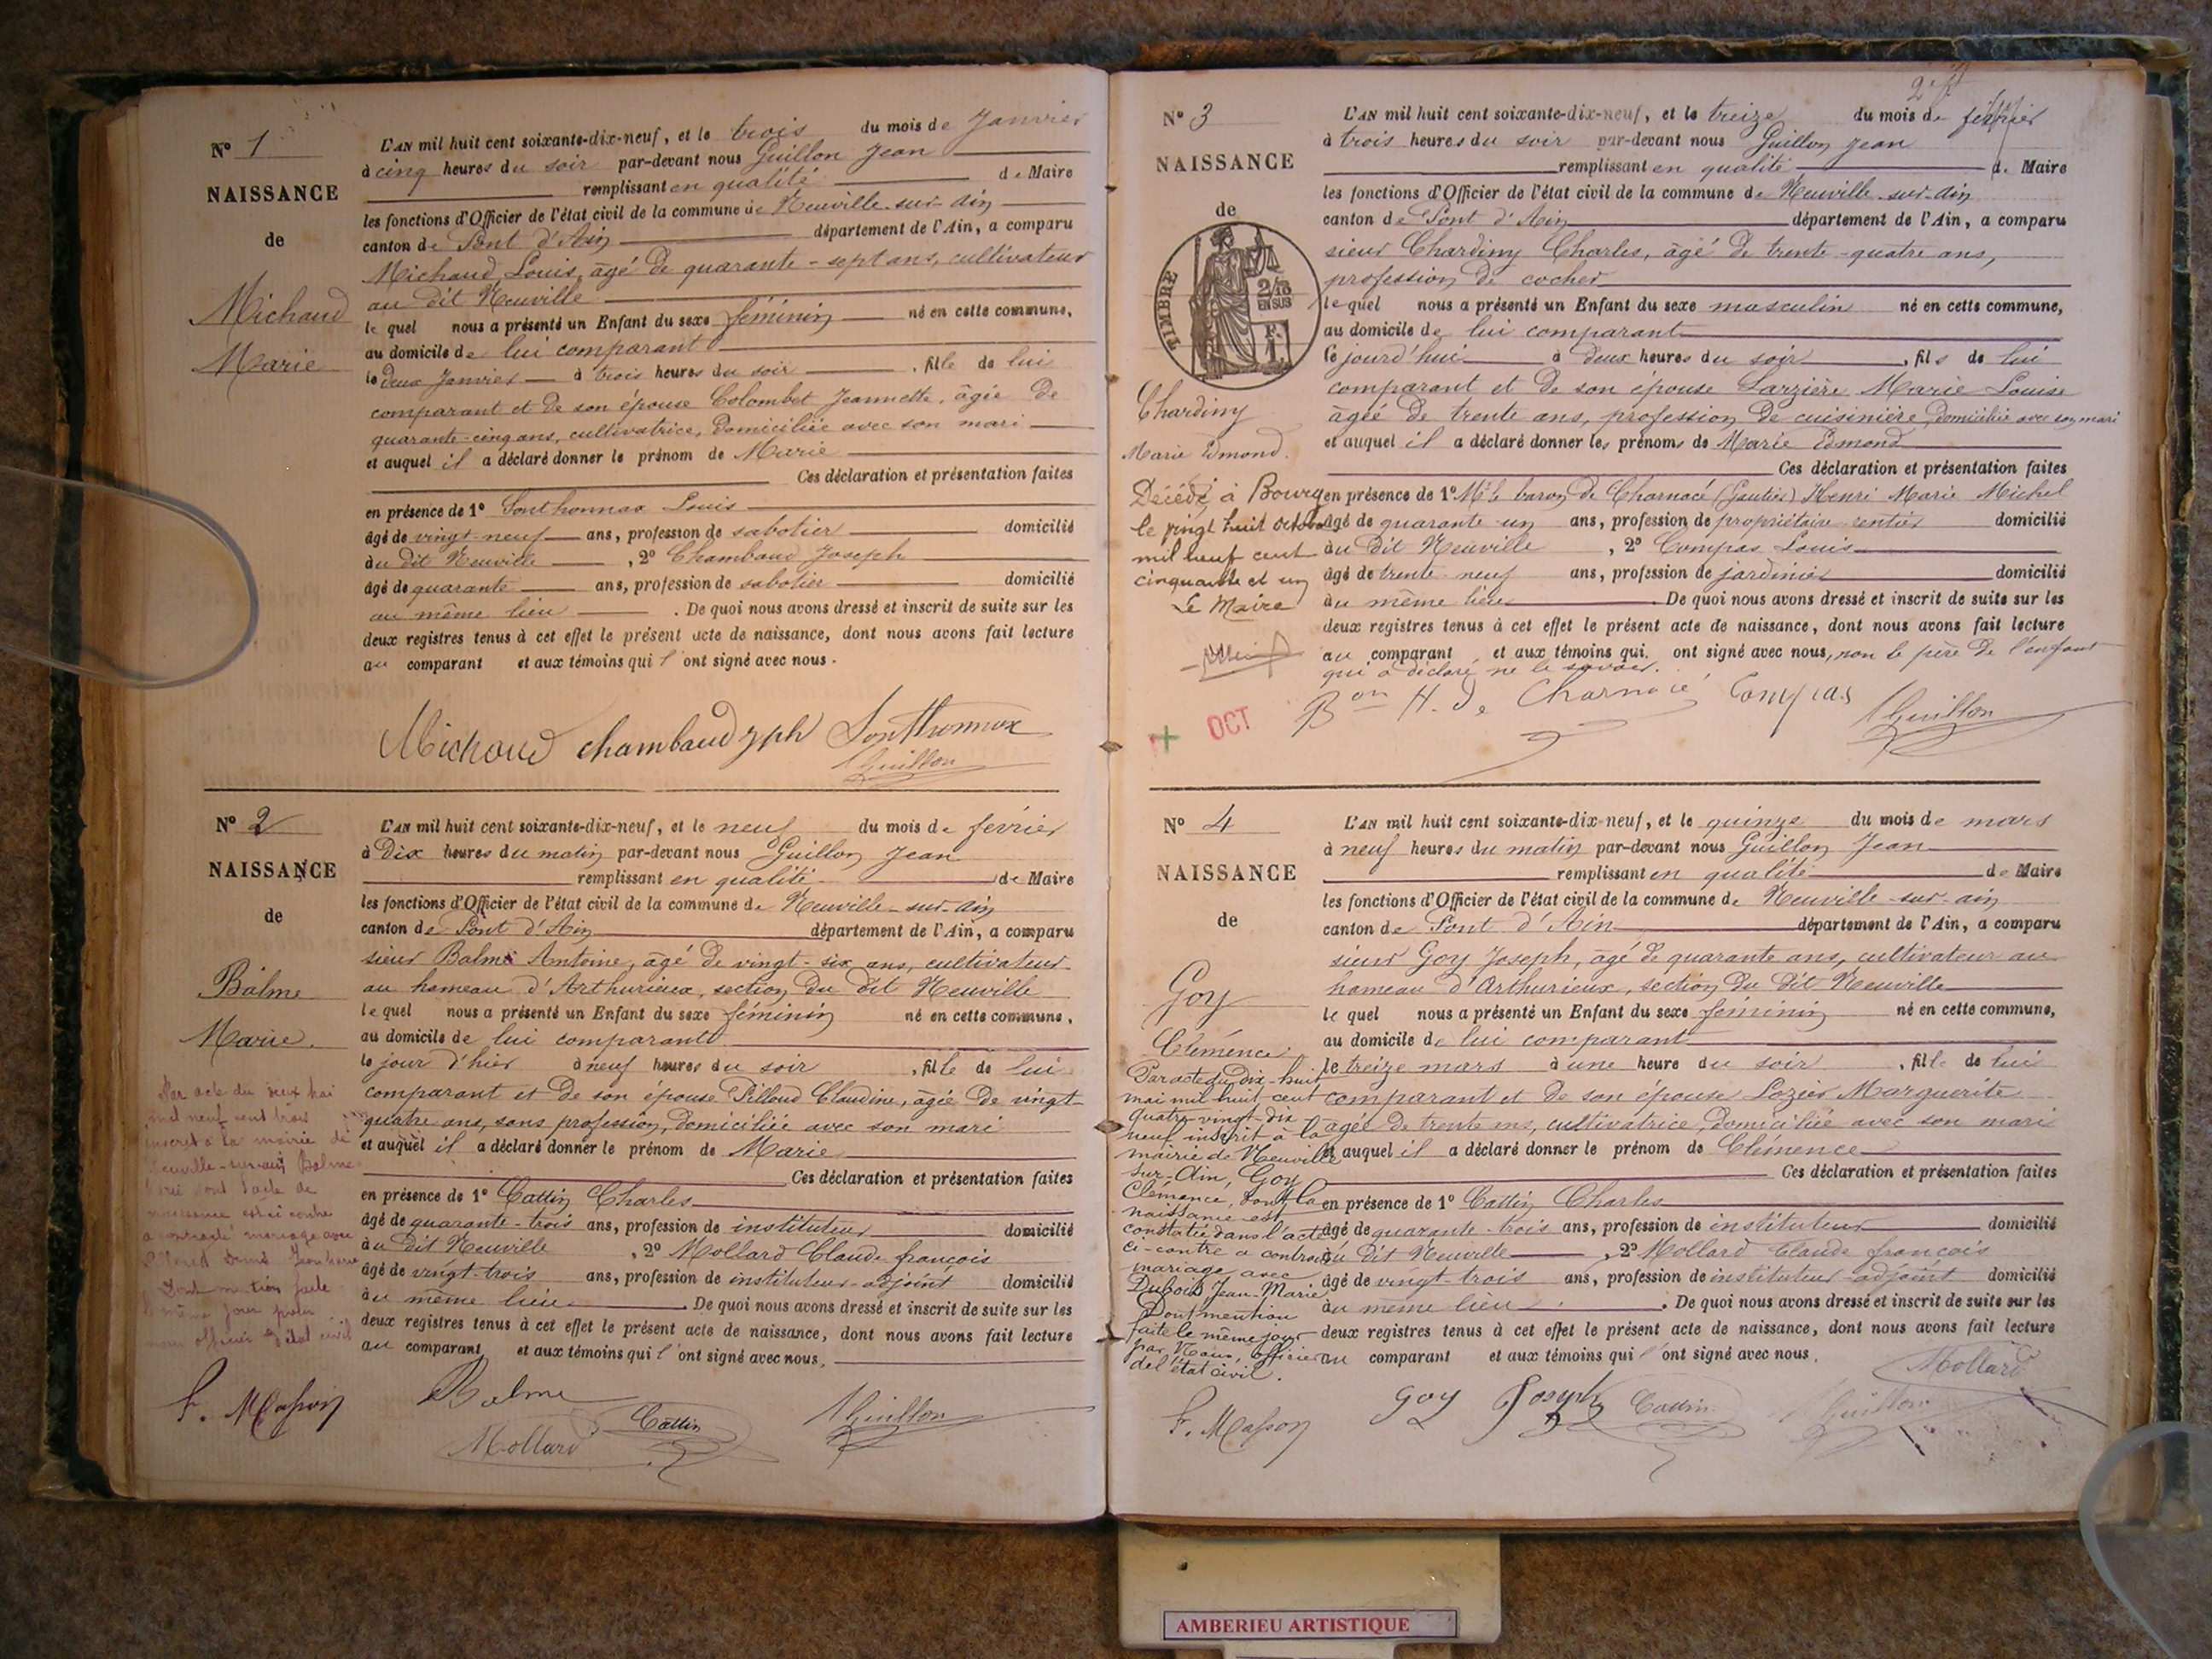 N° 1
NAISSANCE
de
Michaud
Marie
L'AN mil huit cent soixante-dix-neuf, et le trois du mois de Janvier
à cinq heures du soir par-devant nous Guillon Jean
remplissant en qualité de Maire
les fonctions d'Officier de l'état civil de la commune de Neuville-sur-Ain
canton de Pont d'Ain département de l'Ain, a comparu
Michaud Louis, âgé de quarante-sept ans, cultivateur
au dit Neuville
le quel nous a présenté un Enfant du sexe féminin né en cette commune,
au domicile de lui comparant
le deux Janvier à trois heures du soir, fille de lui
comparant et de son épouse Colombet Jeannette, âgée de
quarante-cinq ans, cultivatrice, domiciliée avec son mari
et auquel il a déclaré donner le prénom de Marie
Ces déclaration et présentation faites
en présence de 1° Sonthonnax Louis
âgé de vingt-neuf ans, profession de sabotier domicilié
au dit Neuville, 2° Chambaud Joseph
âgé de quarante ans, profession de sabotier domicilié
au même lieu. De quoi nous avons dressé et inscrit de suite sur les
deux registres tenus à cet effet le présent acte de naissance, dont nous avons fait lecture
au comparant et aux témoins qui l'ont signé avec nous.
Michaud chambaud jph Sonthonnax
Guillon
N° 2
NAISSANCE
de
Balme
Marie.
L'AN mil huit cent soixante-dix-neuf, et le neuf du mois de février
à dix heures du matin par-devant nous Guillon Jean
remplissant en qualité de Maire
les fonctions d'Officier de l'état civil de la commune de Neuville-sur-Ain
canton de Pont d'Ain département de l'Ain, a comparu
sieur Balme Antoine, âgé de vingt-six ans, cultivateur
au hameau d'Arthurieux, section du dit Neuville
le quel nous a présenté un Enfant du sexe féminin né en cette commune,
au domicile de lui comparant
le jour d'hier à neuf heures du soir, fille de lui
comparant et de son épouse Pilloud Claudine, âgée de vingt-
quatre ans, sans profession, domiciliée avec son mari
et auquel il a déclaré donner le prénom de Marie
Ces déclaration et présentation faites
en présence de 1° Cattin Charles
âgé de quarante-trois ans, profession de instituteur domicilié
au dit Neuville, 2° Mollard Claude françois
âgé de vingt-trois ans, profession de instituteur-adjoint domicilié
au même lieu. De quoi nous avons dressé et inscrit de suite sur les
deux registres tenus à cet effet le présent acte de naissance, dont nous avons fait lecture
au comparant et aux témoins qui l'ont signé avec nous.
Par acte du deux mai
mil neuf cent trois
inscrit à la mairie de
Neuville-sur-Ain Balme
Marie dont l'acte de
naissance est ci contre
a contracté mariage avec
Dont mention faite
le même jour par
nous officier d'état civil
F. Masson Balme
Mollard Cattin Guillon
N° 3
NAISSANCE
de
TIMBRE
2/10
EN SUS
F.
1.
Chardiny
Marie Edmond.
L'AN mil huit cent soixante-dix-neuf, et le treize du mois de février
à trois heures du soir par-devant nous Guillon Jean
remplissant en qualité de Maire
les fonctions d'Officier de l'état civil de la commune de Neuville-sur-Ain
canton de Pont d'Ain département de l'Ain, a comparu
sieur Chardiny Charles, âgé de trente-quatre ans,
profession de cocher
le quel nous a présenté un Enfant du sexe masculin né en cette commune,
au domicile de lui comparant
ce jourd'hui à deux heures du soir, fils de lui
comparant et de son épouse Larzière Marie Louise
âgée de trente ans, profession de cuisinière, domiciliée avec son mari
et auquel il a déclaré donner les prénoms de Marie Edmond
Ces déclaration et présentation faites
en présence de 1° Mr le baron de Charnacé (Gautier) Henri Marie Michel
âgé de quarante-un ans, profession de propriétaire rentier domicilié
au dit Neuville, 2° Compas Louis
âgé de trente-neuf ans, profession de jardinier domicilié
au même lieu. De quoi nous avons dressé et inscrit de suite sur les
deux registres tenus à cet effet le présent acte de naissance, dont nous avons fait lecture
au comparant et aux témoins qui ont signé avec nous, non le père de l'enfant
qui a déclaré ne le savoir.
Décédé à Bourg
le vingt huit octobre
mil neuf cent
cinquante et un
Le Maire
OCT
Bon H. de Charnacé Compas Guillon
N° 4
NAISSANCE
de
Goy
Clémence
L'AN mil huit cent soixante-dix-neuf, et le quinze du mois de mars
à neuf heures du matin par-devant nous Guillon Jean
remplissant en qualité de Maire
les fonctions d'Officier de l'état civil de la commune de Neuville-sur-ain
canton de Pont d'Ain département de l'Ain, a comparu
sieur Goy Joseph, âgé de quarante ans, cultivateur au
hameau d'Arthurieux, section du dit Neuville
le quel nous a présenté un Enfant du sexe féminin né en cette commune,
au domicile de lui comparant
le treize mars à une heure du soir, fille de lui
comparant et de son épouse Lozier Marguerite
âgée de trente ans, cultivatrice, domiciliée avec son mari
et auquel il a déclaré donner le prénom de Clémence
Ces déclaration et présentation faites
en présence de 1° Cattin Charles
âgé de quarante-trois ans, profession de instituteur domicilié
au dit Neuville, 2° Mollard Claude françois
âgé de vingt-trois ans, profession de instituteur-adjoint domicilié
au même lieu. De quoi nous avons dressé et inscrit de suite sur les
deux registres tenus à cet effet le présent acte de naissance, dont nous avons fait lecture
au comparant et aux témoins qui l'ont signé avec nous.
Par acte du dix-huit
mai mil huit cent
quatre-vingt-dix
neuf inscrit à la
mairie de Neuville
sur-Ain, Goy
Clémence, dont la
naissance est
constatée dans l'acte
ci-contre a contracté
mariage avec
Dubois Jean-Marie
Dont mention
faite le même jour
par Nous, officier
de l'état civil.
Mollard
F. Masson Goy Joseph Cattin Guillon
AMBERIEU ARTISTIQUE